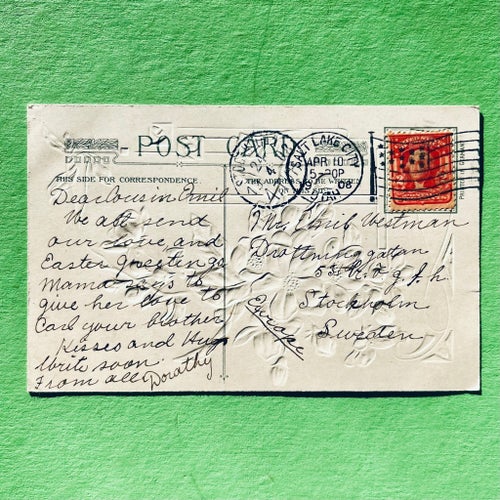 POST CARD
THIS SIDE FOR CORRESPONDENCE.
THE ADDRESS
SALT LAKE CITY
APR 10
5-30P
08
UTAH
Dear Cousin Emil
We all send
our Love and
Easter Greetings
Mama says to
give her love to
Carl your brother
Kisses and Hug
Write soon.
From all Dorathy
Mr. Emil Westman
Drottninggatan
Stockholm
Europe
Sweden